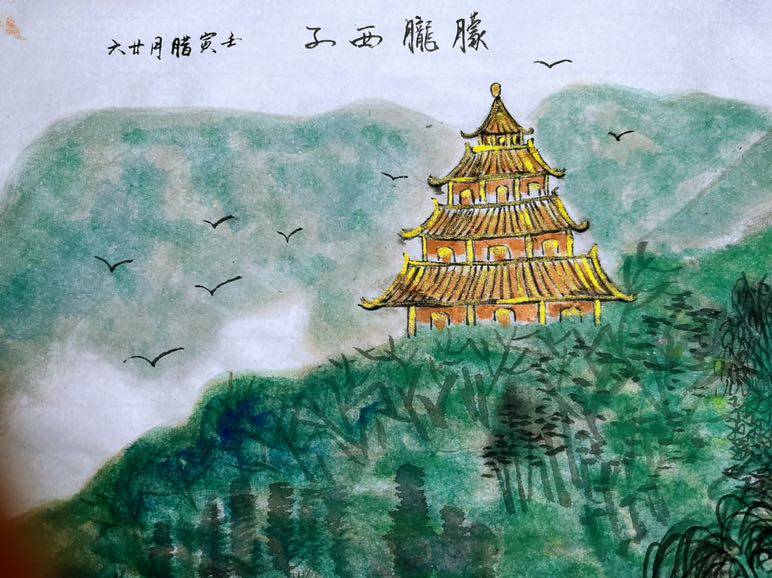 朦朧西子
壬寅腊月廿六